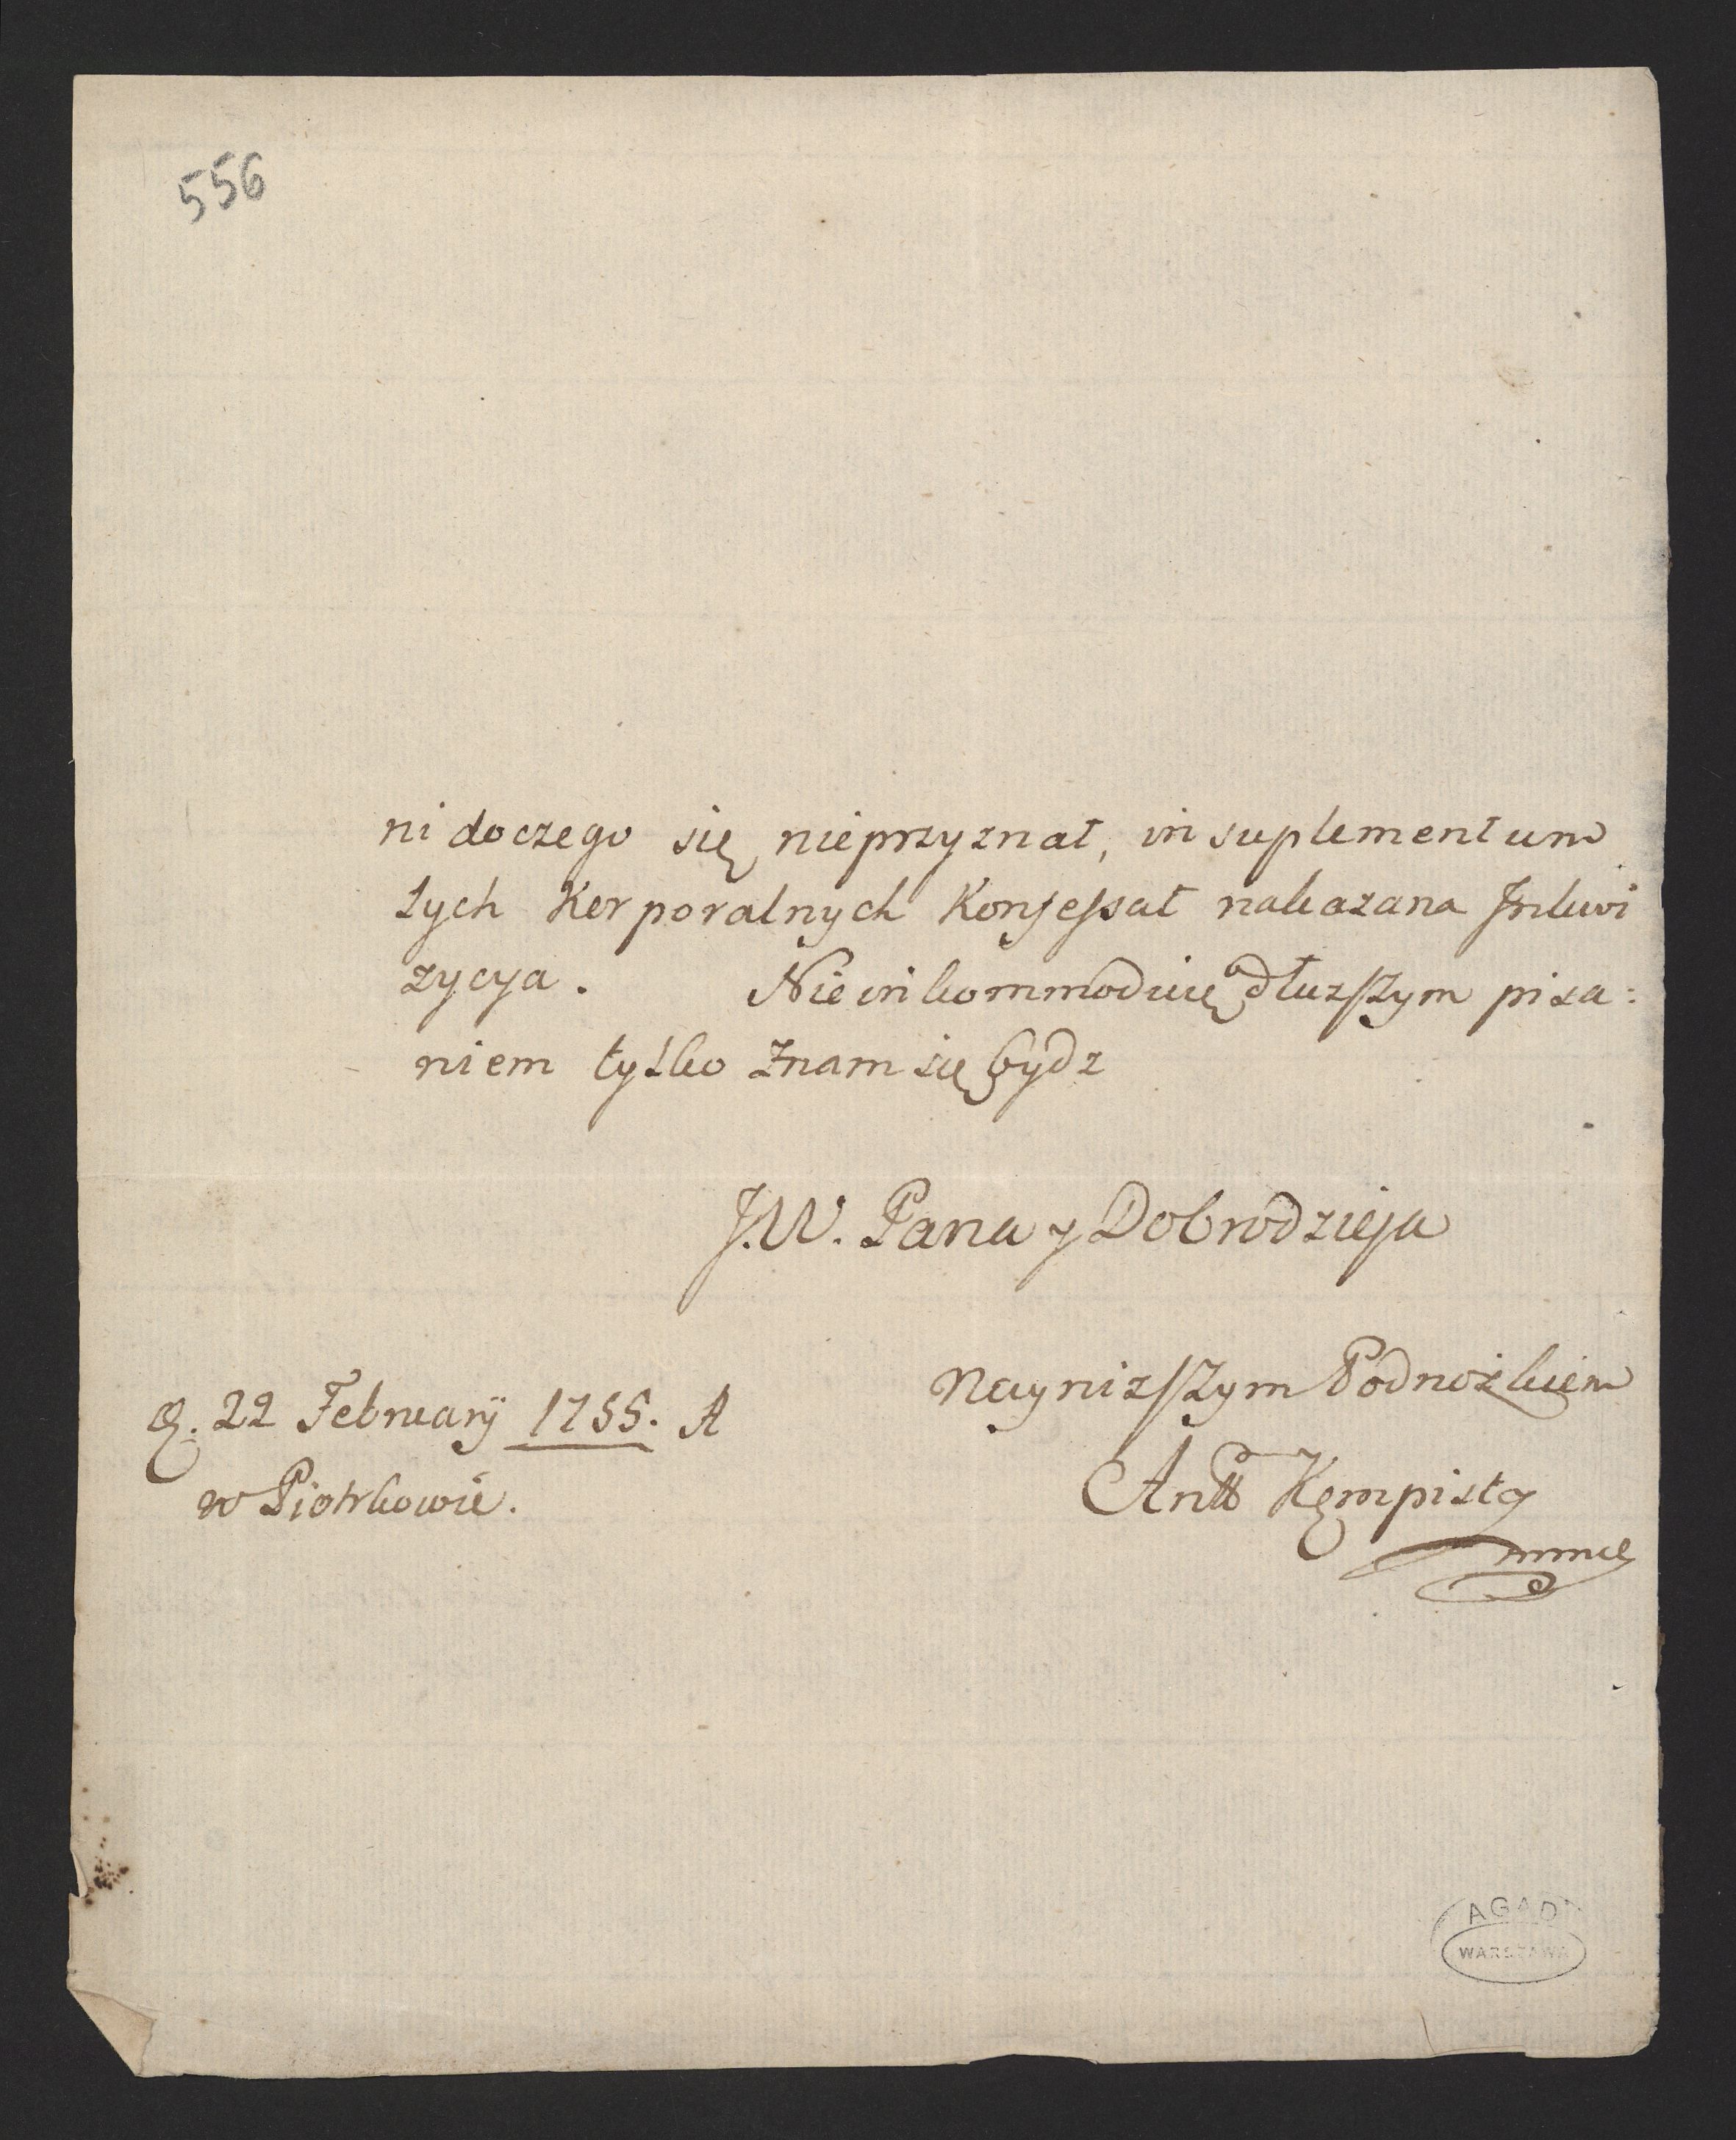 556
ni doczego się nieprzyznał, in suplementum
tych Korporalnych Konfessat nakazana Inkwi
zycya. Nie inkommoduię dłuzszym pisa:
niem tylko znam się bydz
J.W. Pana y Dobrodzieja
Nayniższym Podnożkiem
d. 22 February 1755. A
w Piotrkowie.
Antt Kęmpisty
mmce
AGAD
WARSZAWA